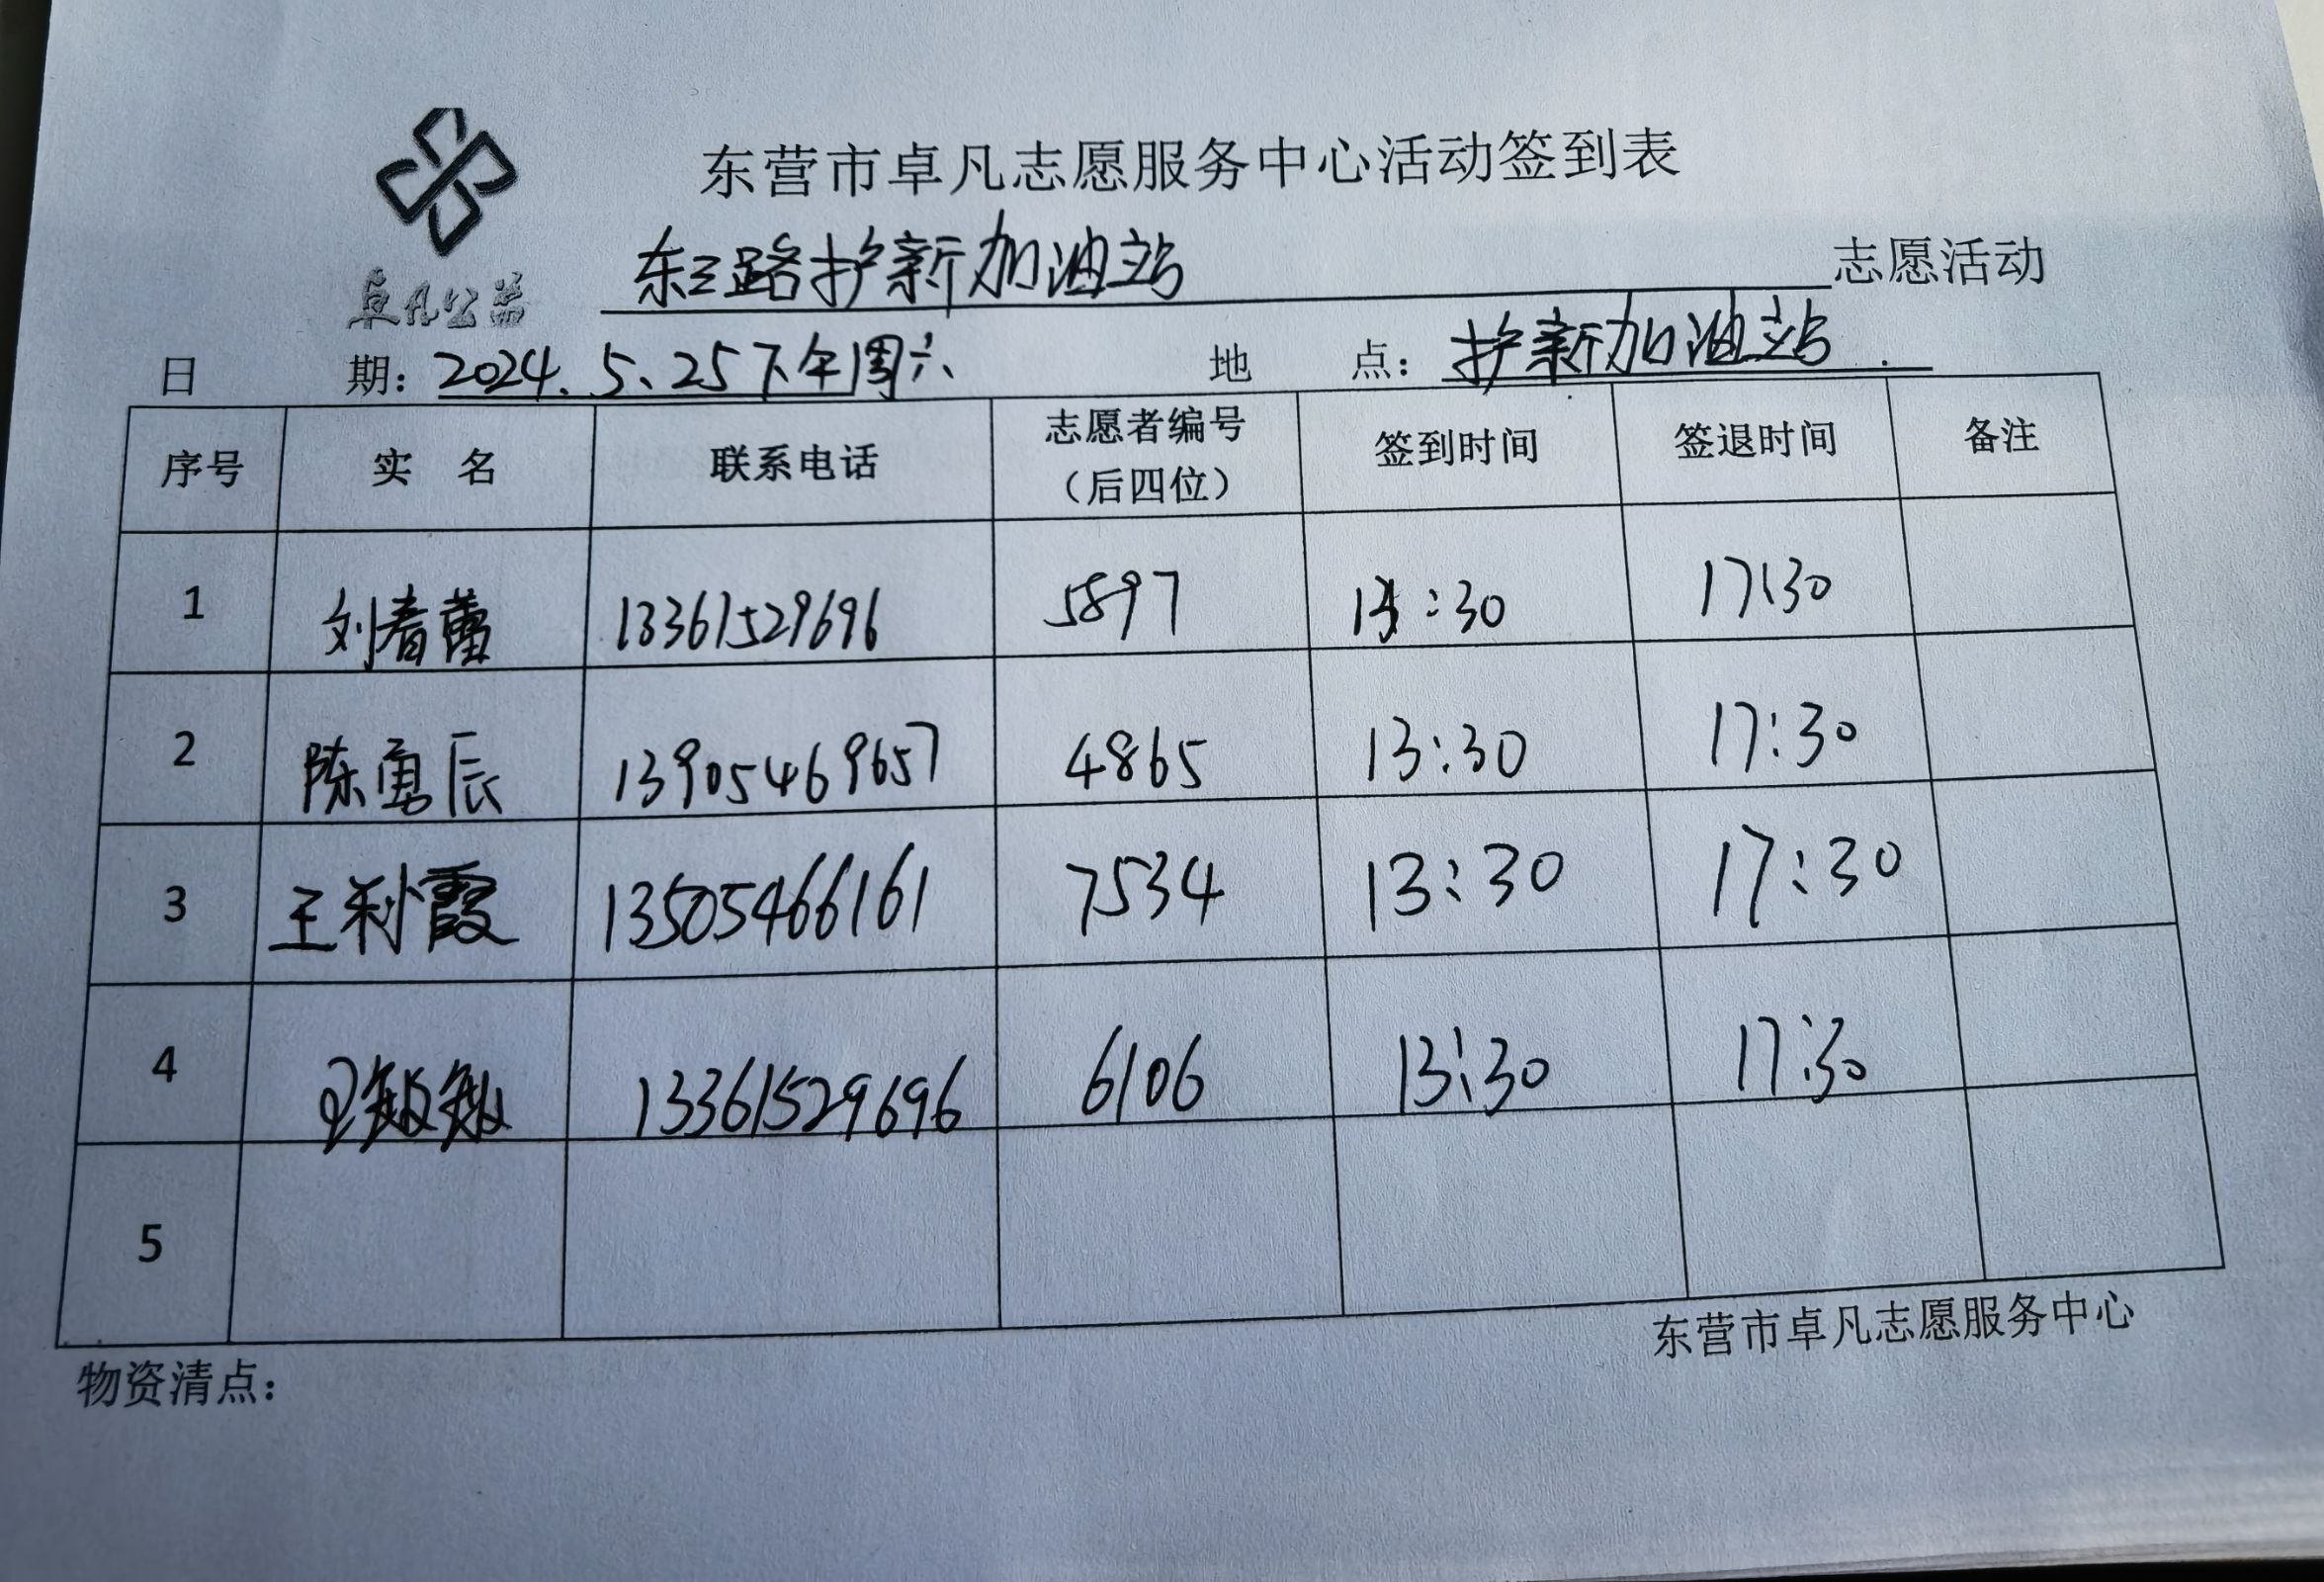 东营市卓凡志愿服务中心活动签到表
卓凡公益
东三路护新加油站 志愿活动
日 期：2024.5.25下午周六 地 点：护新加油站
序号 实 名 联系电话 志愿者编号（后四位） 签到时间 签退时间 备注
1 刘春蕾 13361529696 5897 13:30 17:30
2 陈勇辰 13905469657 4865 13:30 17:30
3 王利霞 13505466161 7534 13:30 17:30
4 王敏敏 13361529696 6106 13:30 17:30
5
东营市卓凡志愿服务中心
物资清点：